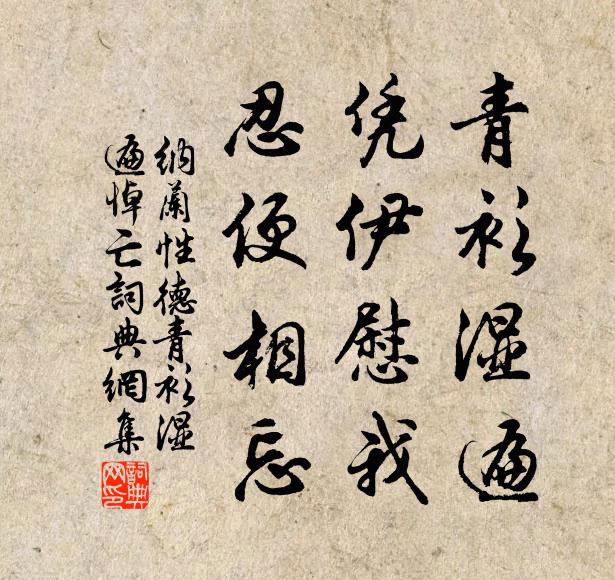 青衫湿遍
凭伊慰我
忍便相忘
纳兰性德青衫湿
遍悼亡詞典網集
詞典网印